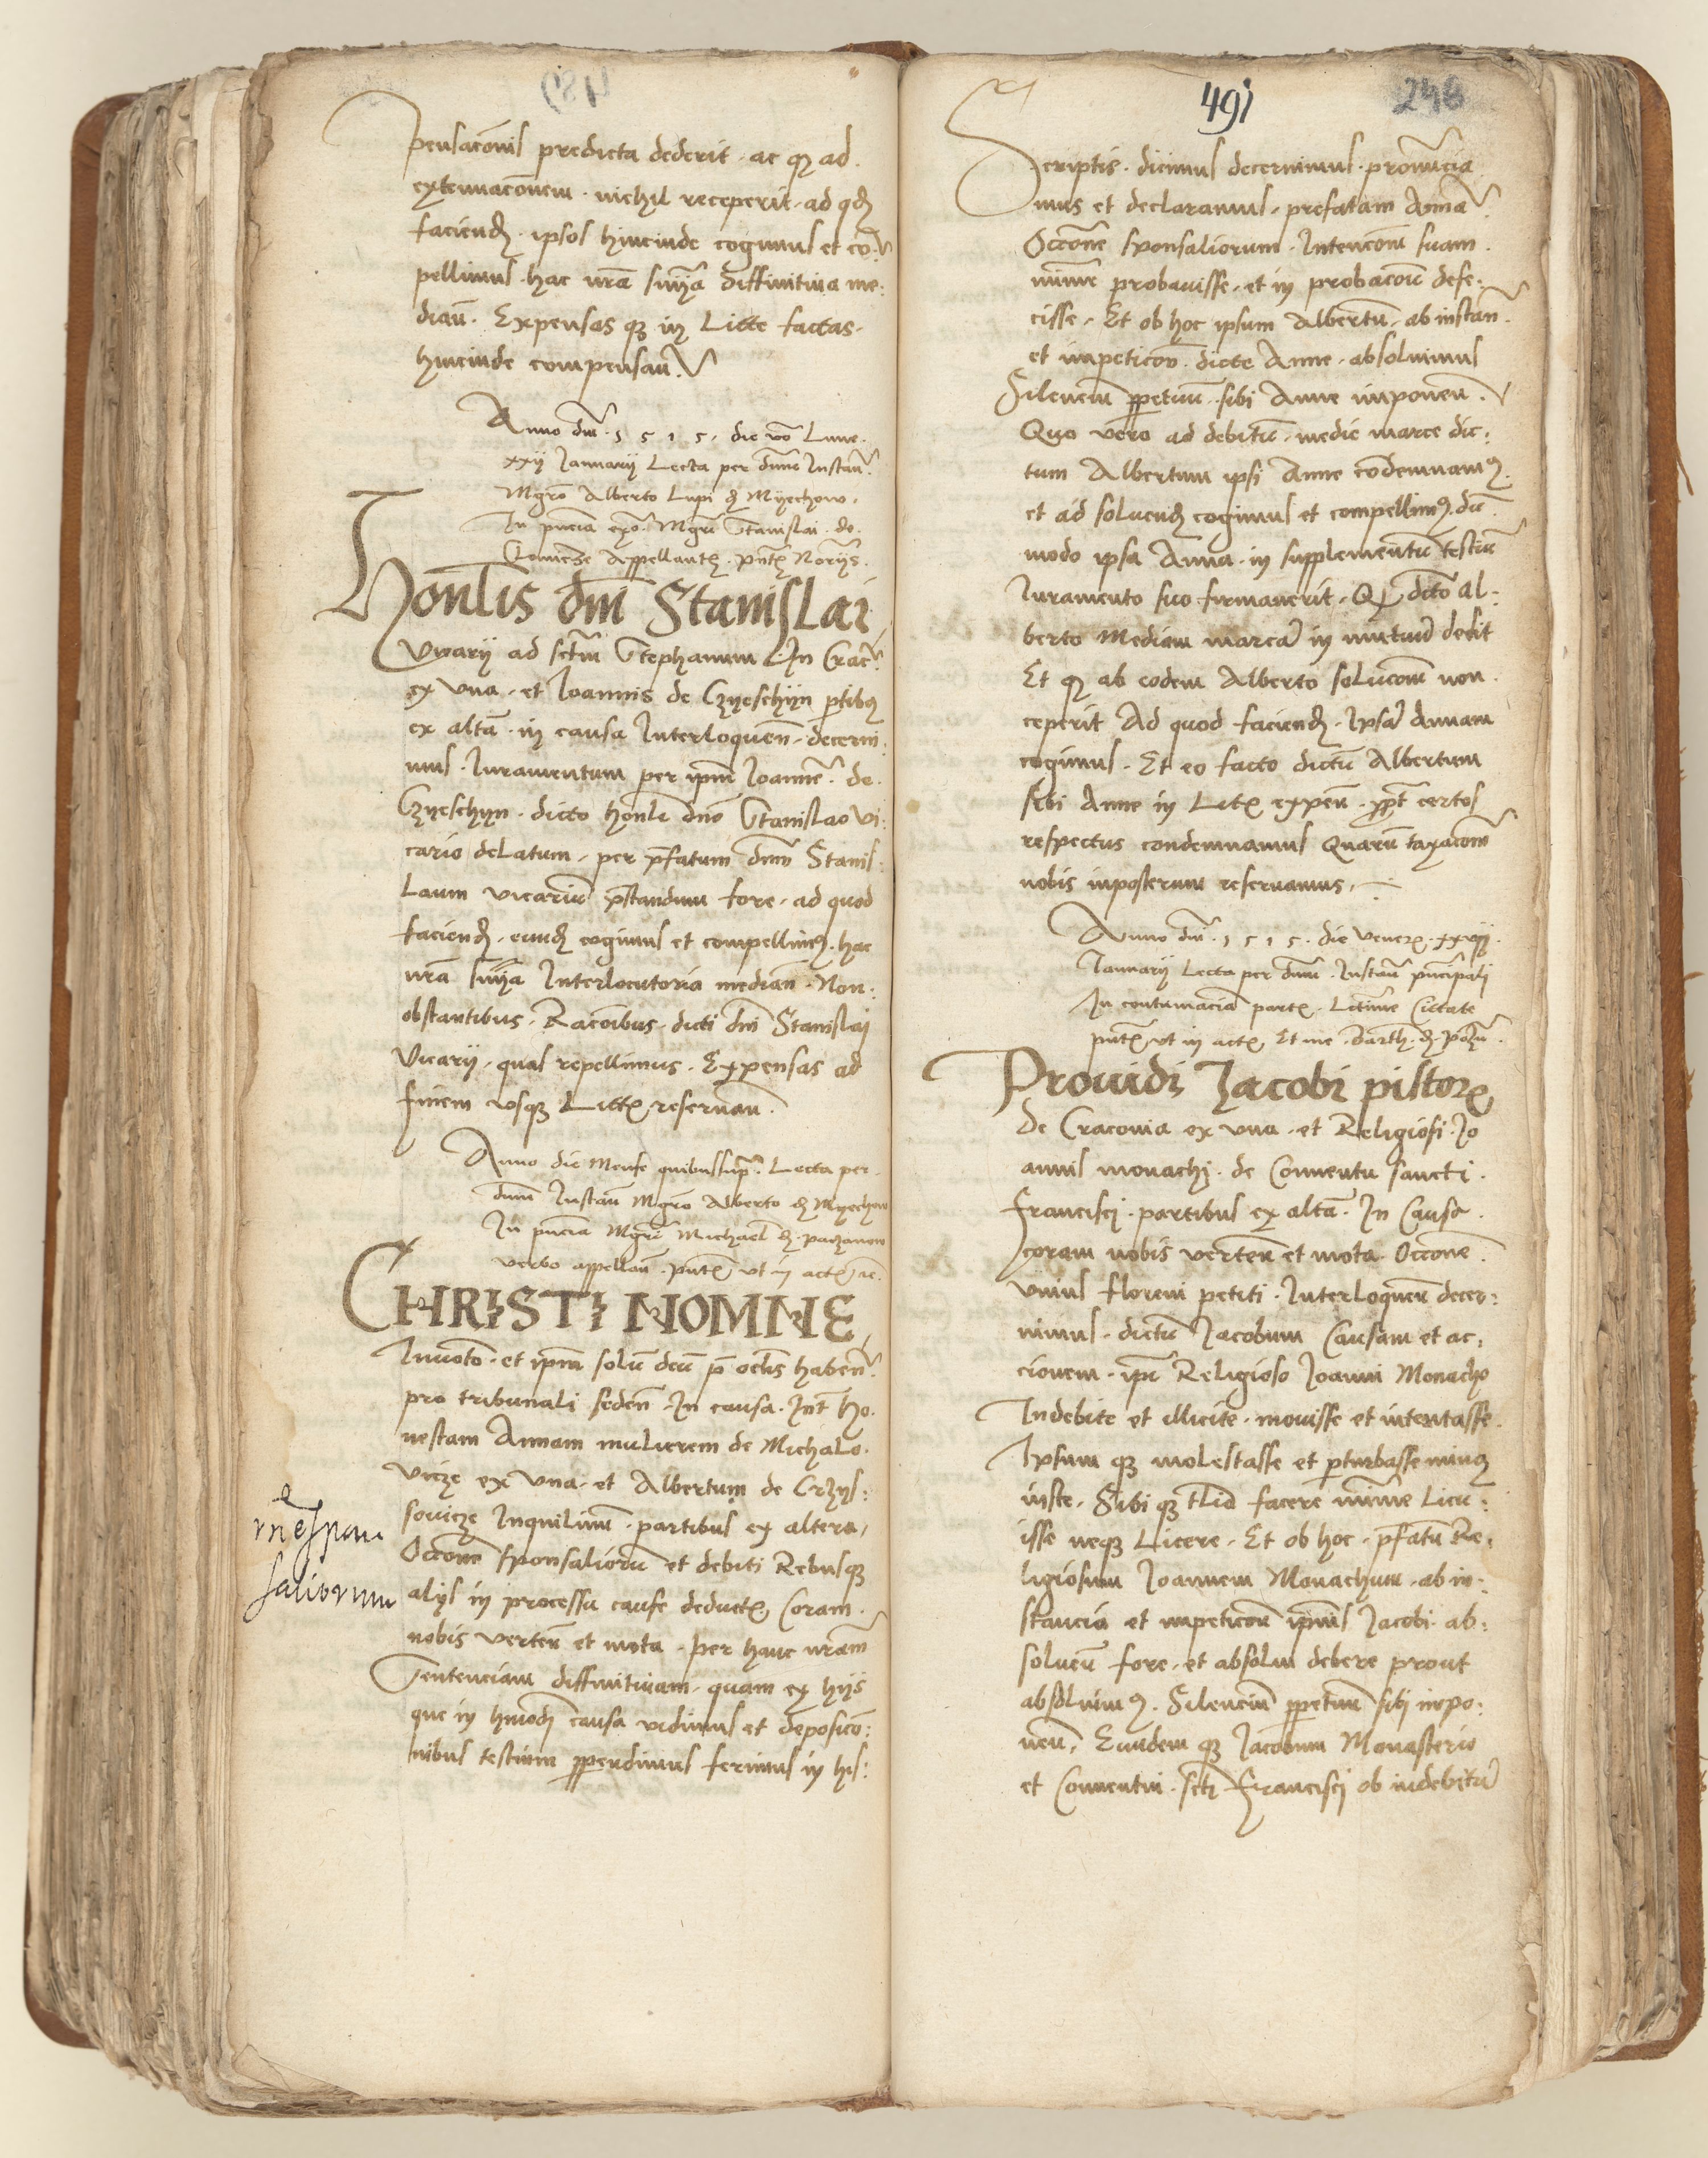 pensacōnis predicta dederit · ac qȝ ad ·
extenuacōnem · nichil receperit · ad qđ
faciend̄ · ipsos hincinde cogimus et cō
pellimus · hac nr̄a sn̄ia diffinitiua me:
dian̄ · Expensas qȝ in Litte factas ·
hincinde compensan̄ ·
Anno dn̄i · 1515 · die vō Lune ·
xxij Januarij Lecta per dn̄m Instan̄ ·
Mgrō Alberto Lupi d̄ Myechow ·
In pn̄cia Mgr̄i Stanislai · de ·
Appellant̄ · pn̄t̄ Norijs ·
Honl̄is dn̄i Stanislai
Vicarij ad sctm̄ Stephanum In Crac̄ ·
ex vna · et Joannis de Czyeschyn ptibȝ
ex altā · in causa Interloquen̄ · decerni
mus · Iuramentum per ipm̄ Joannē · de ·
Czyeschyn · dicto honl̄i dn̄o Stanislao vi:
cario delatum · per p̄fatum dn̄m Stanis:
laum vicariū p̄standum fore · ad quod
faciend̄ · eund̄ cogimus et compellimȝ · hac
nr̄a sn̄ia Interlocutoria median̄ · Non:
obstantibus · Racōibus · dicti dn̄i Stanislai
Vicarij · quas repellimus · Expensas ad
finem vsqȝ Litt̄ reseruan̄ ·
Anno die Mense quibus supr̄ · Lecta per ·
dn̄m Instan̄ Mgrō Alberto d̄ Myechow
In pn̄cia Mgr̄i Michael̄ d̄ paczanow
verbo appellan̄ · pn̄t̄ vt in act̄ ·
CHRISTI NOMINE
Inuocto · et ipm̄ solū deū p̄ oclis haben̄ ·
pro tribunali seden̄ · In causa · Int̄ ho ·
nestam Annam mulierem de Michalo ·
vicze ex vna · et Albertum de Crzys:
sovicze Inquilinum · partibus ex altera,
Occōne sponsaliorū et debiti Rebusqȝ
alijs in processu cause deduct̄ Coram ·
nobis verten̄ et mota · per hanc nr̄am
Sentenciam diffinitiuam · quam ex hijs
que in hmōi causa vidimus et deposicō:
nibus testium ꝑpendimus ferimus in his:
saliorum
491
248
Scriptis · dicimus decernimus · pronūcia
mus et declaramus · prefatam Annā ·
Occōne sponsaliorum · Intencōnē suam ·
minime probauisse · et in probacōne defe:
cisse · Et ob hoc ipsum Albertū · ab instan̄ ·
et impeticōn̄ · dicte Anne · absoluimus
Silenciū ꝑpetuū · sibi Anne imponen̄ ·
Quo vero ad debitū · medie marce dic:
tum Albertum ipsi Anne cōdemnamȝ ·
et ad soluend̄ cogimus et compellimȝ · dū ·
modo ipsa Anna · in supplementū testiū
Iuramento suo firmauerit · Qȝ dicto Al:
berto Mediam marcā in mutuū dedit
Et qȝ ab eodem Alberto solucōnē non ·
ceperit Ad quod faciend̄ · Ipsā Annam
cogimus · Et eo facto dictū Albertum
sibi Anne in Lit̄ expen̄ · ꝓpt̄ certos
respectus condemnamus Quarū taxacōnē
nobis inposterum reseruamus ·
Anno dn̄i · 1515 · die Vener̄ · xxvij ·
Januarij Lecta per dn̄m · Instan̄ prīcipali
In contumaciā part̄ · Litīme Citate
pn̄t̄ vt in act̄ Et me · Barth̄ · d̄ ·
Prouidi Jacobi pistor̄
de Cracouia ex vna · et Religiosi · Jo
annis monachi · de Conuentu sancti ·
Francisci · partibus ex altā · In Causa ·
coram nobis verten̄ et mota · Occōne ·
vnius floreni petiti · Interloquen̄ decer:
nimus · dictū Jacobum Causam et ac:
cionem · ipī Religioso Joanni Monacho
Indebite et illicite · mouisse et intentasse ·
Ipsum qȝ molestasse et perturbasse minuȝ
iuste · Sibi qȝ facere minime Licu:
isse neqȝ Licere · Et ob hoc · p̄fatū Re:
ligiosum Joannem Monachum · ab in:
stancia et impeticōn̄ ipīus Jacobi · ab:
soluen̄ fore · et absolui debere prout
absoluimȝ · Silenciū ꝑpetuū sibi impo:
nen̄ · Eundem qȝ Jacobum Monasterio
et Conuentui · scti Francisci ob indebitā